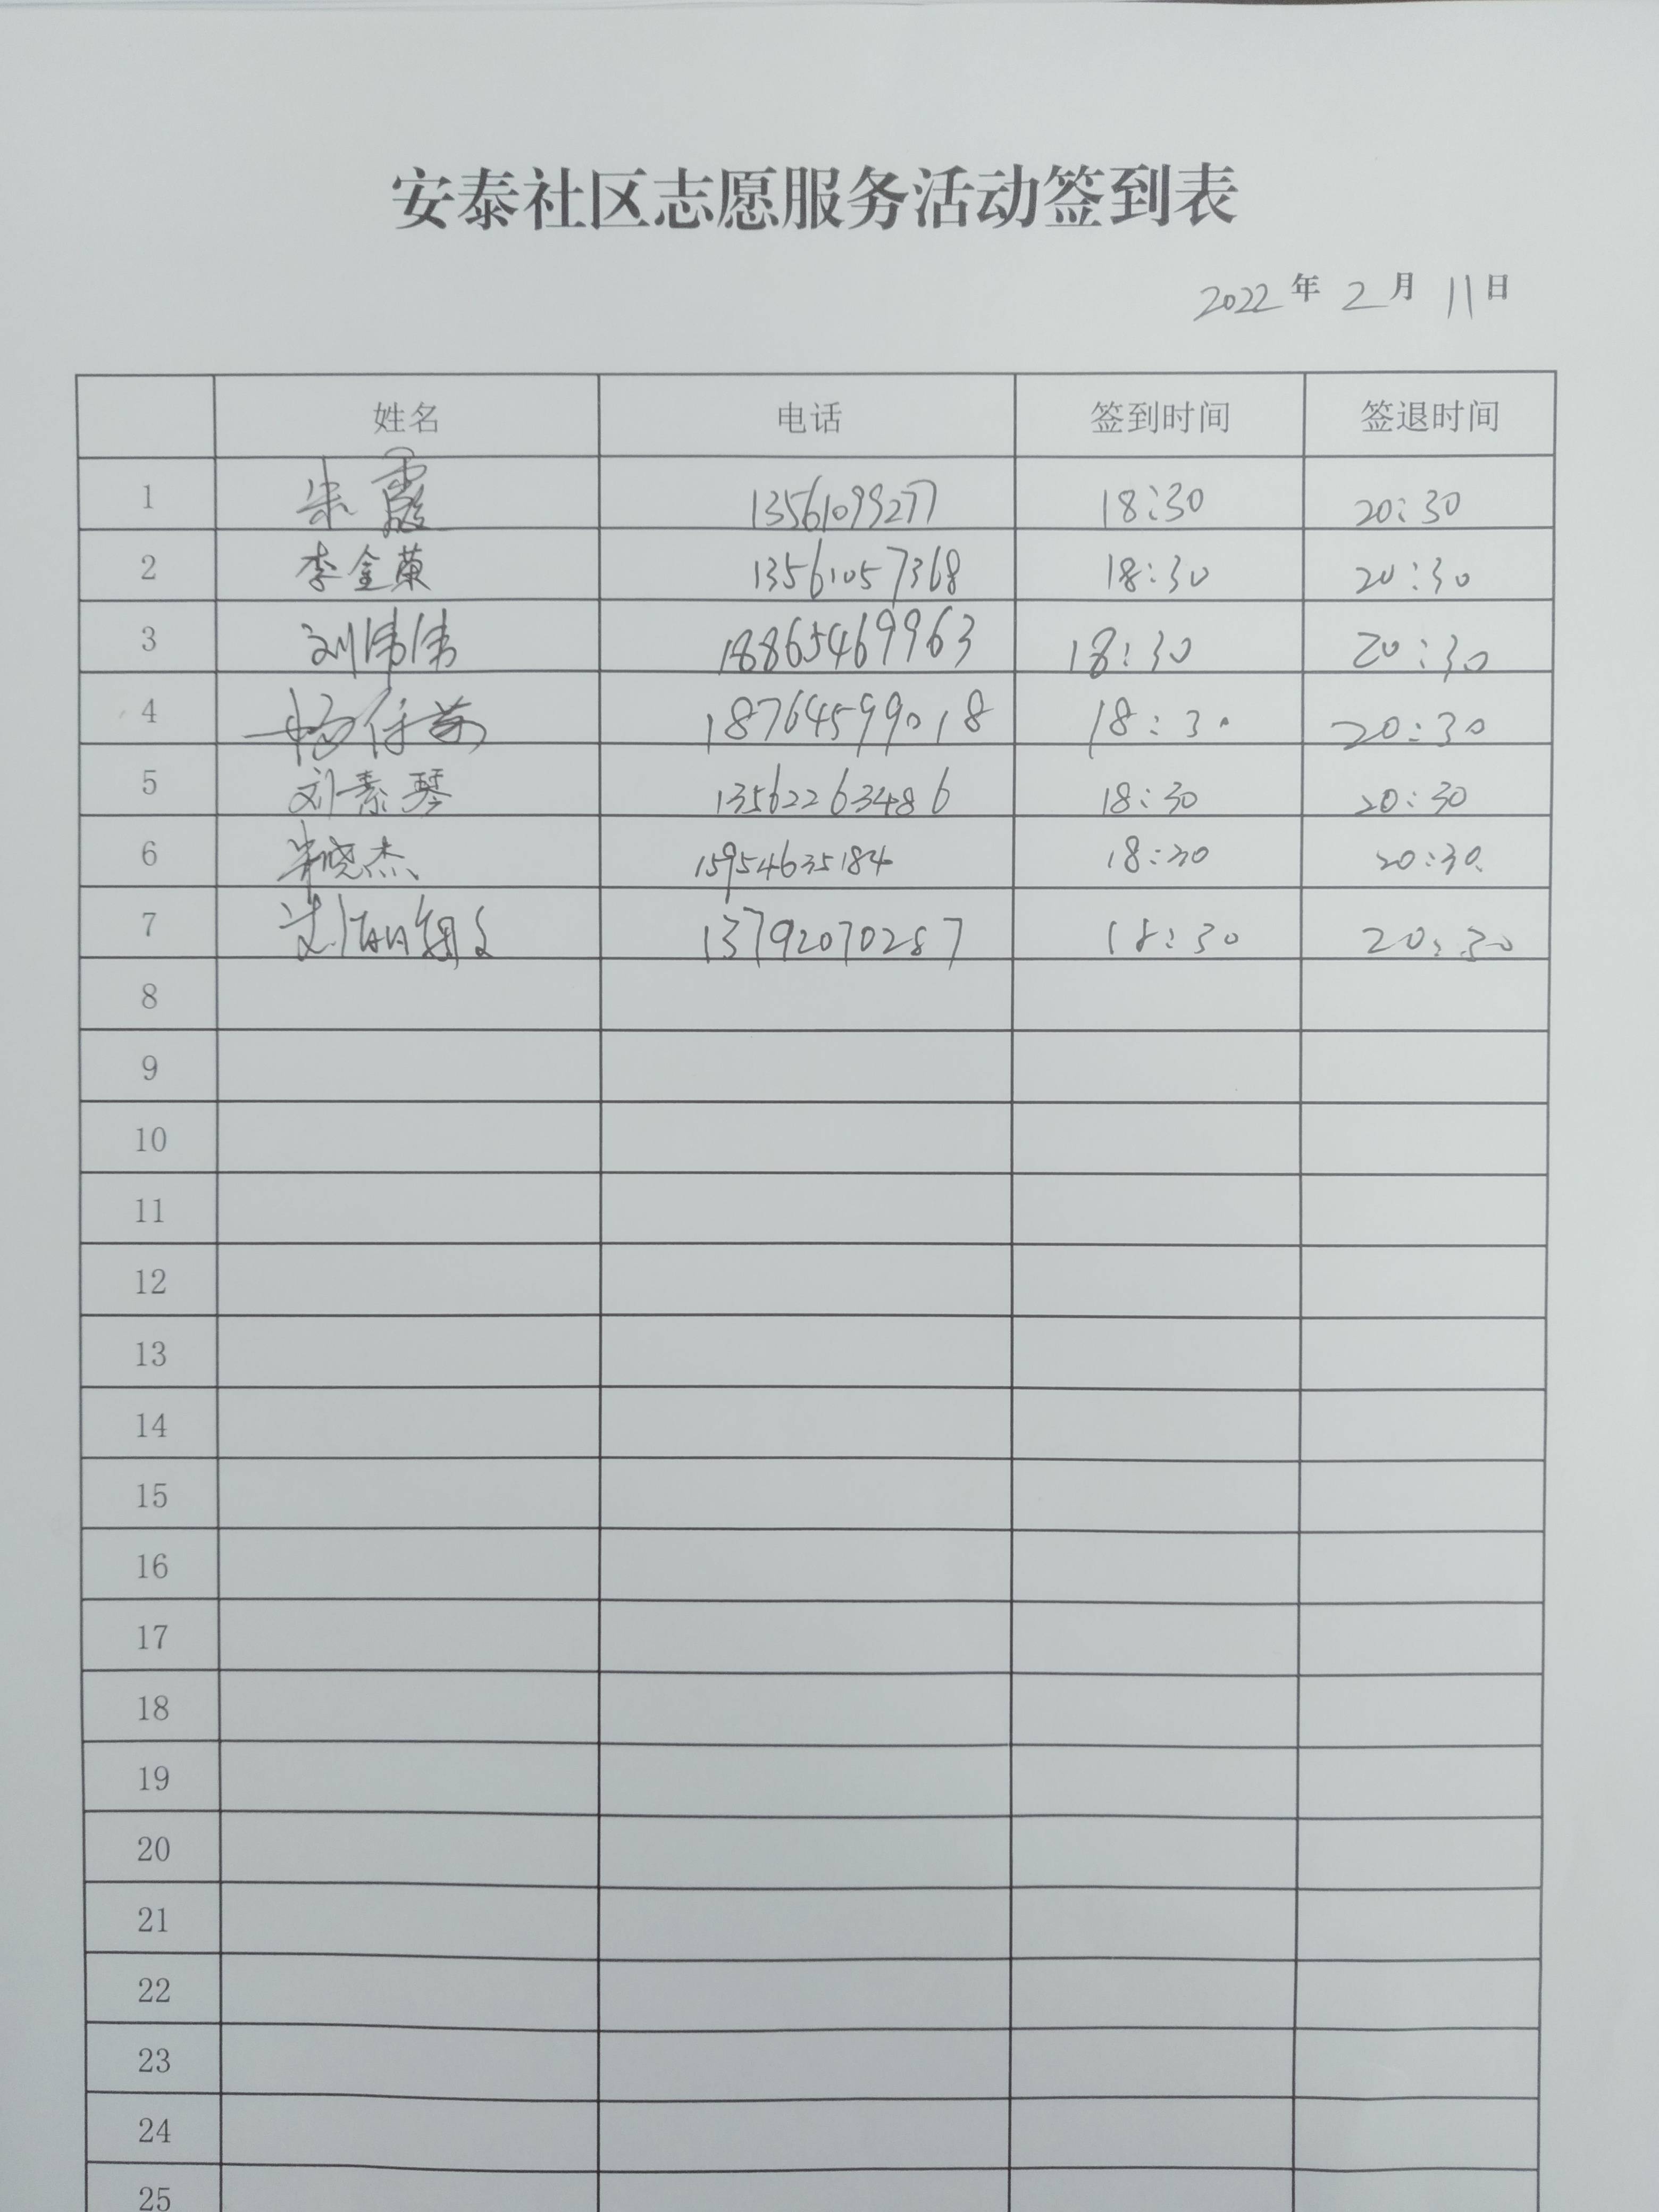 安泰社区志愿服务活动签到表
2022年2月11日
姓名 电话 签到时间 签退时间
1 朱霞 13561099277 18:30 20:30
2 李金荣 13561057368 18:30 20:30
3 刘伟伟 18865469963 18:30 20:30
4 18764599018 18:30 20:30
5 刘素琴 13562263486 18:30 20:30
6 晓杰 15954635184 18:30 20:30
7 13792070287 18:30 20:30
8
9
10
11
12
13
14
15
16
17
18
19
20
21
22
23
24
25